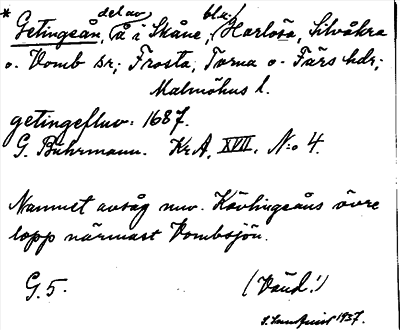 * Getingeån, del av å i Skåne, bl.a. Harlösa, Silvåkra
o. Vomb sn; Frosta, Torna o. Färs hdr;
Malmöhus l.
getingefluv: 1687.
G. Buhrmann. Kr.A. XVII. N:o 4.
Namnet avsåg nuv. Kävlingeåns övre
lopp närmast Vombsjön.
G. 5. (Vänd!)
1937.